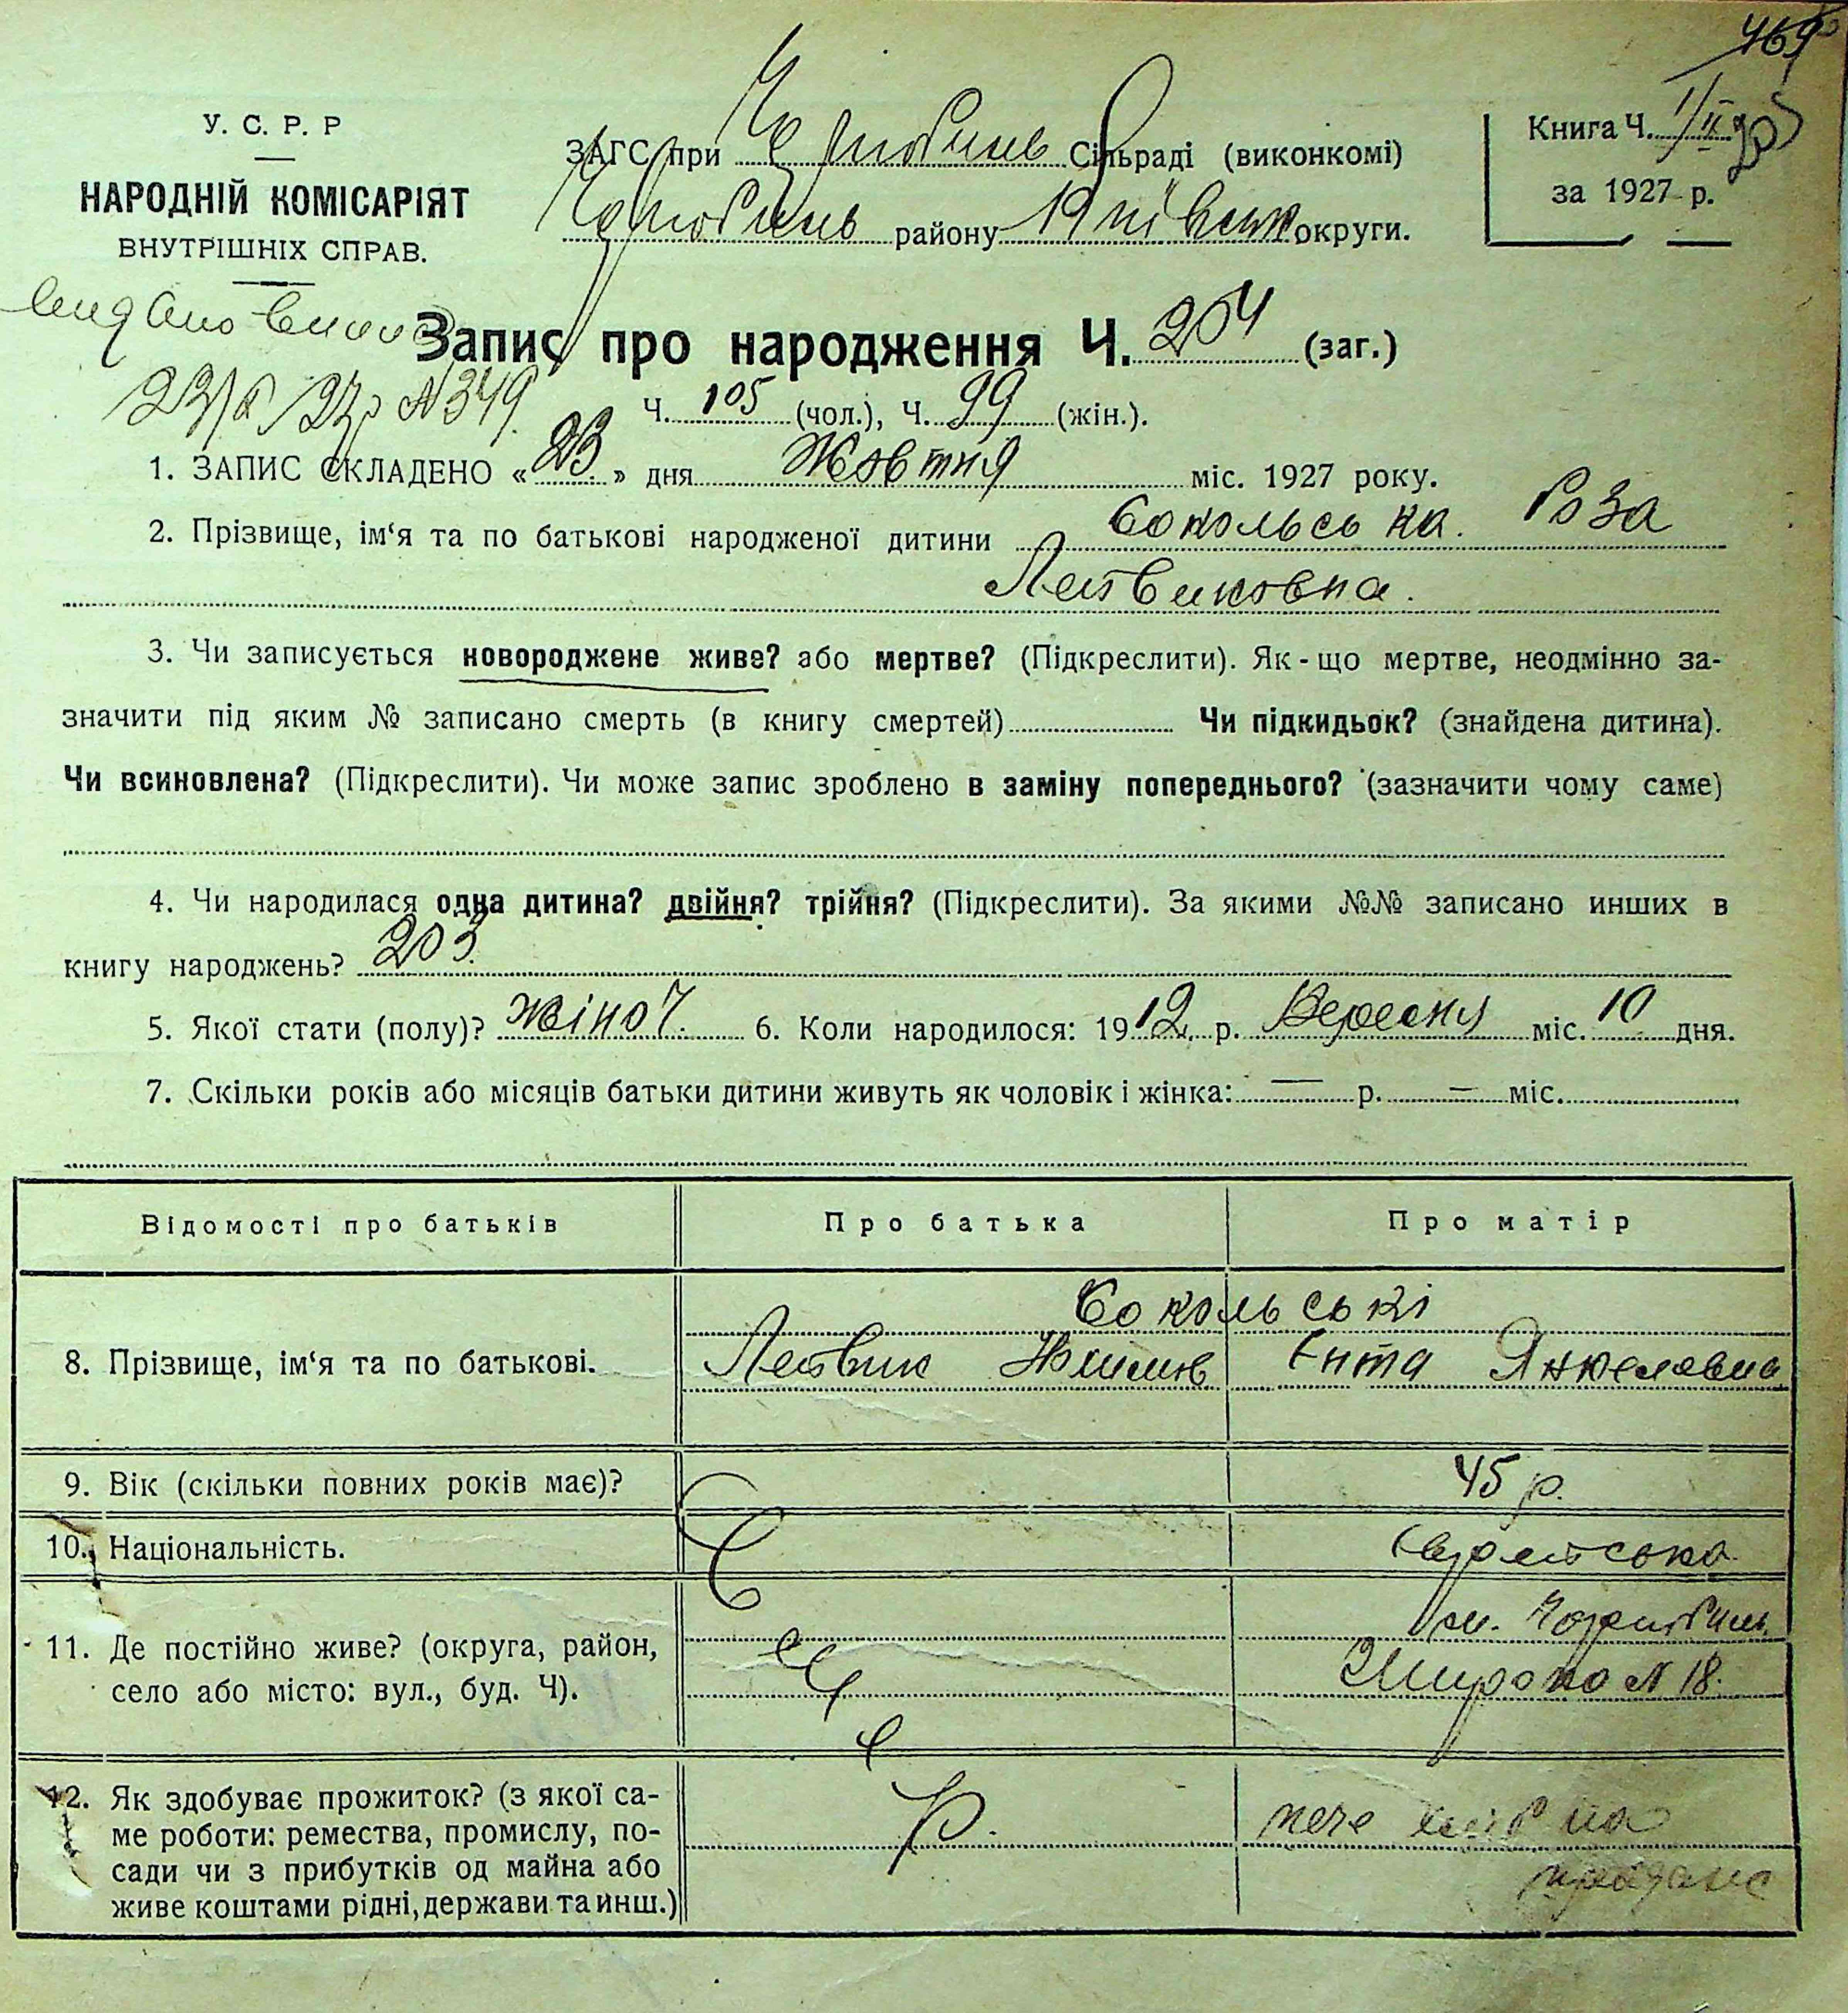 469
У. С. Р. Р
НАРОДНІЙ КОМІСАРІЯТ
ВНУТРІШНІХ СПРАВ.
ЗАГС при Чорнобиль Сільраді (виконкомі)
Чорнобиль району Київськ округи.
Книга Ч. 1/II
за 1927 р.
Запис про народження Ч. 204 (заг.)
N 349.
Ч. 105 (чол.), Ч. 99 (жін.).
1. ЗАПИС СКЛАДЕНО «23» дня Жовтня міс. 1927 року.
2. Прізвище, ім‘я та по батькові народженої дитини Сокольська. Роза
Лейвиковна.
3. Чи записується новороджене живе? або мертве? (Підкреслити). Як-що мертве, неодмінно за-
значити під яким № записано смерть (в книгу смертей) Чи підкидьок? (знайдена дитина).
Чи всиновлена? (Підкреслити). Чи може запис зроблено в заміну попереднього? (зазначити чому саме)
4. Чи народилася одна дитина? двійня? трійня? (Підкреслити). За якими №№ записано инших в
книгу народжень? 203.
5. Якої стати (полу)? жіноч. 6. Коли народилося: 1912 р. Вересня міс. 10 дня.
7. Скільки років або місяців батьки дитини живуть як чоловік і жінка: — р. — міс.
Відомості про батьків Про батька Про матір
Сокольські
8. Прізвище, ім‘я та по батькові. Лейвик Ента Янкелевна
9. Вік (скільки повних років має)? 45 р.
10. Національність. Єврейська
м. Чорнобиль,
11. Де постійно живе? (округа, район,
село або місто: вул., буд. Ч). Широко N 18.
12. Як здобуває прожиток? (з якої са-
ме роботи: ремества, промислу, по-
сади чи з прибутків од майна або
живе коштами рідні, держави та инш.)
Вмер.
пече хліб на
продаж